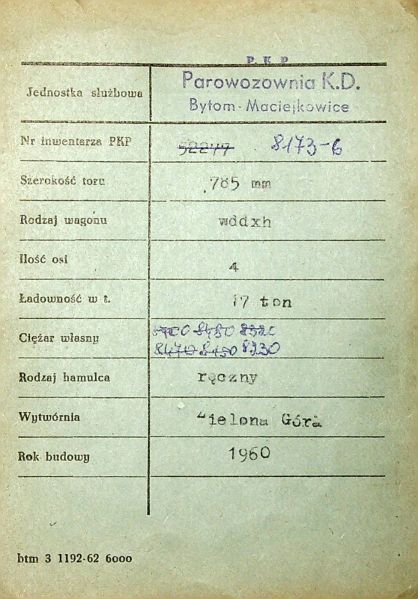 P.K.P
Jednostka służbowa Parowozownia K.D.
Bytom-Maciejkowice
Nr inwentarza PKP 52277 8173-6
Szerokość toru 785 mm
Rodzaj wagonu wddxh
Ilość osi 4
Ładowność w t. 17 ton
Ciężar własny 8480 8320
8470 8450 8230
Rodzaj hamulca ręczny
Wytwórnia Zielona Góra
Rok budowy 1960
btm 3 1192-62 6000